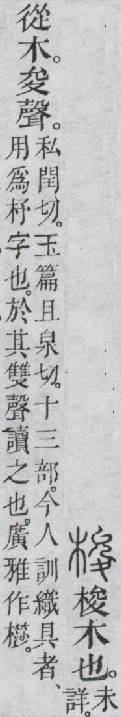 梭梭木也。未
詳。
從木夋聲。私閏切。玉篇且泉切。十三部。今人訓織具者、
用爲杼字也。於其雙聲讀之也。廣雅作